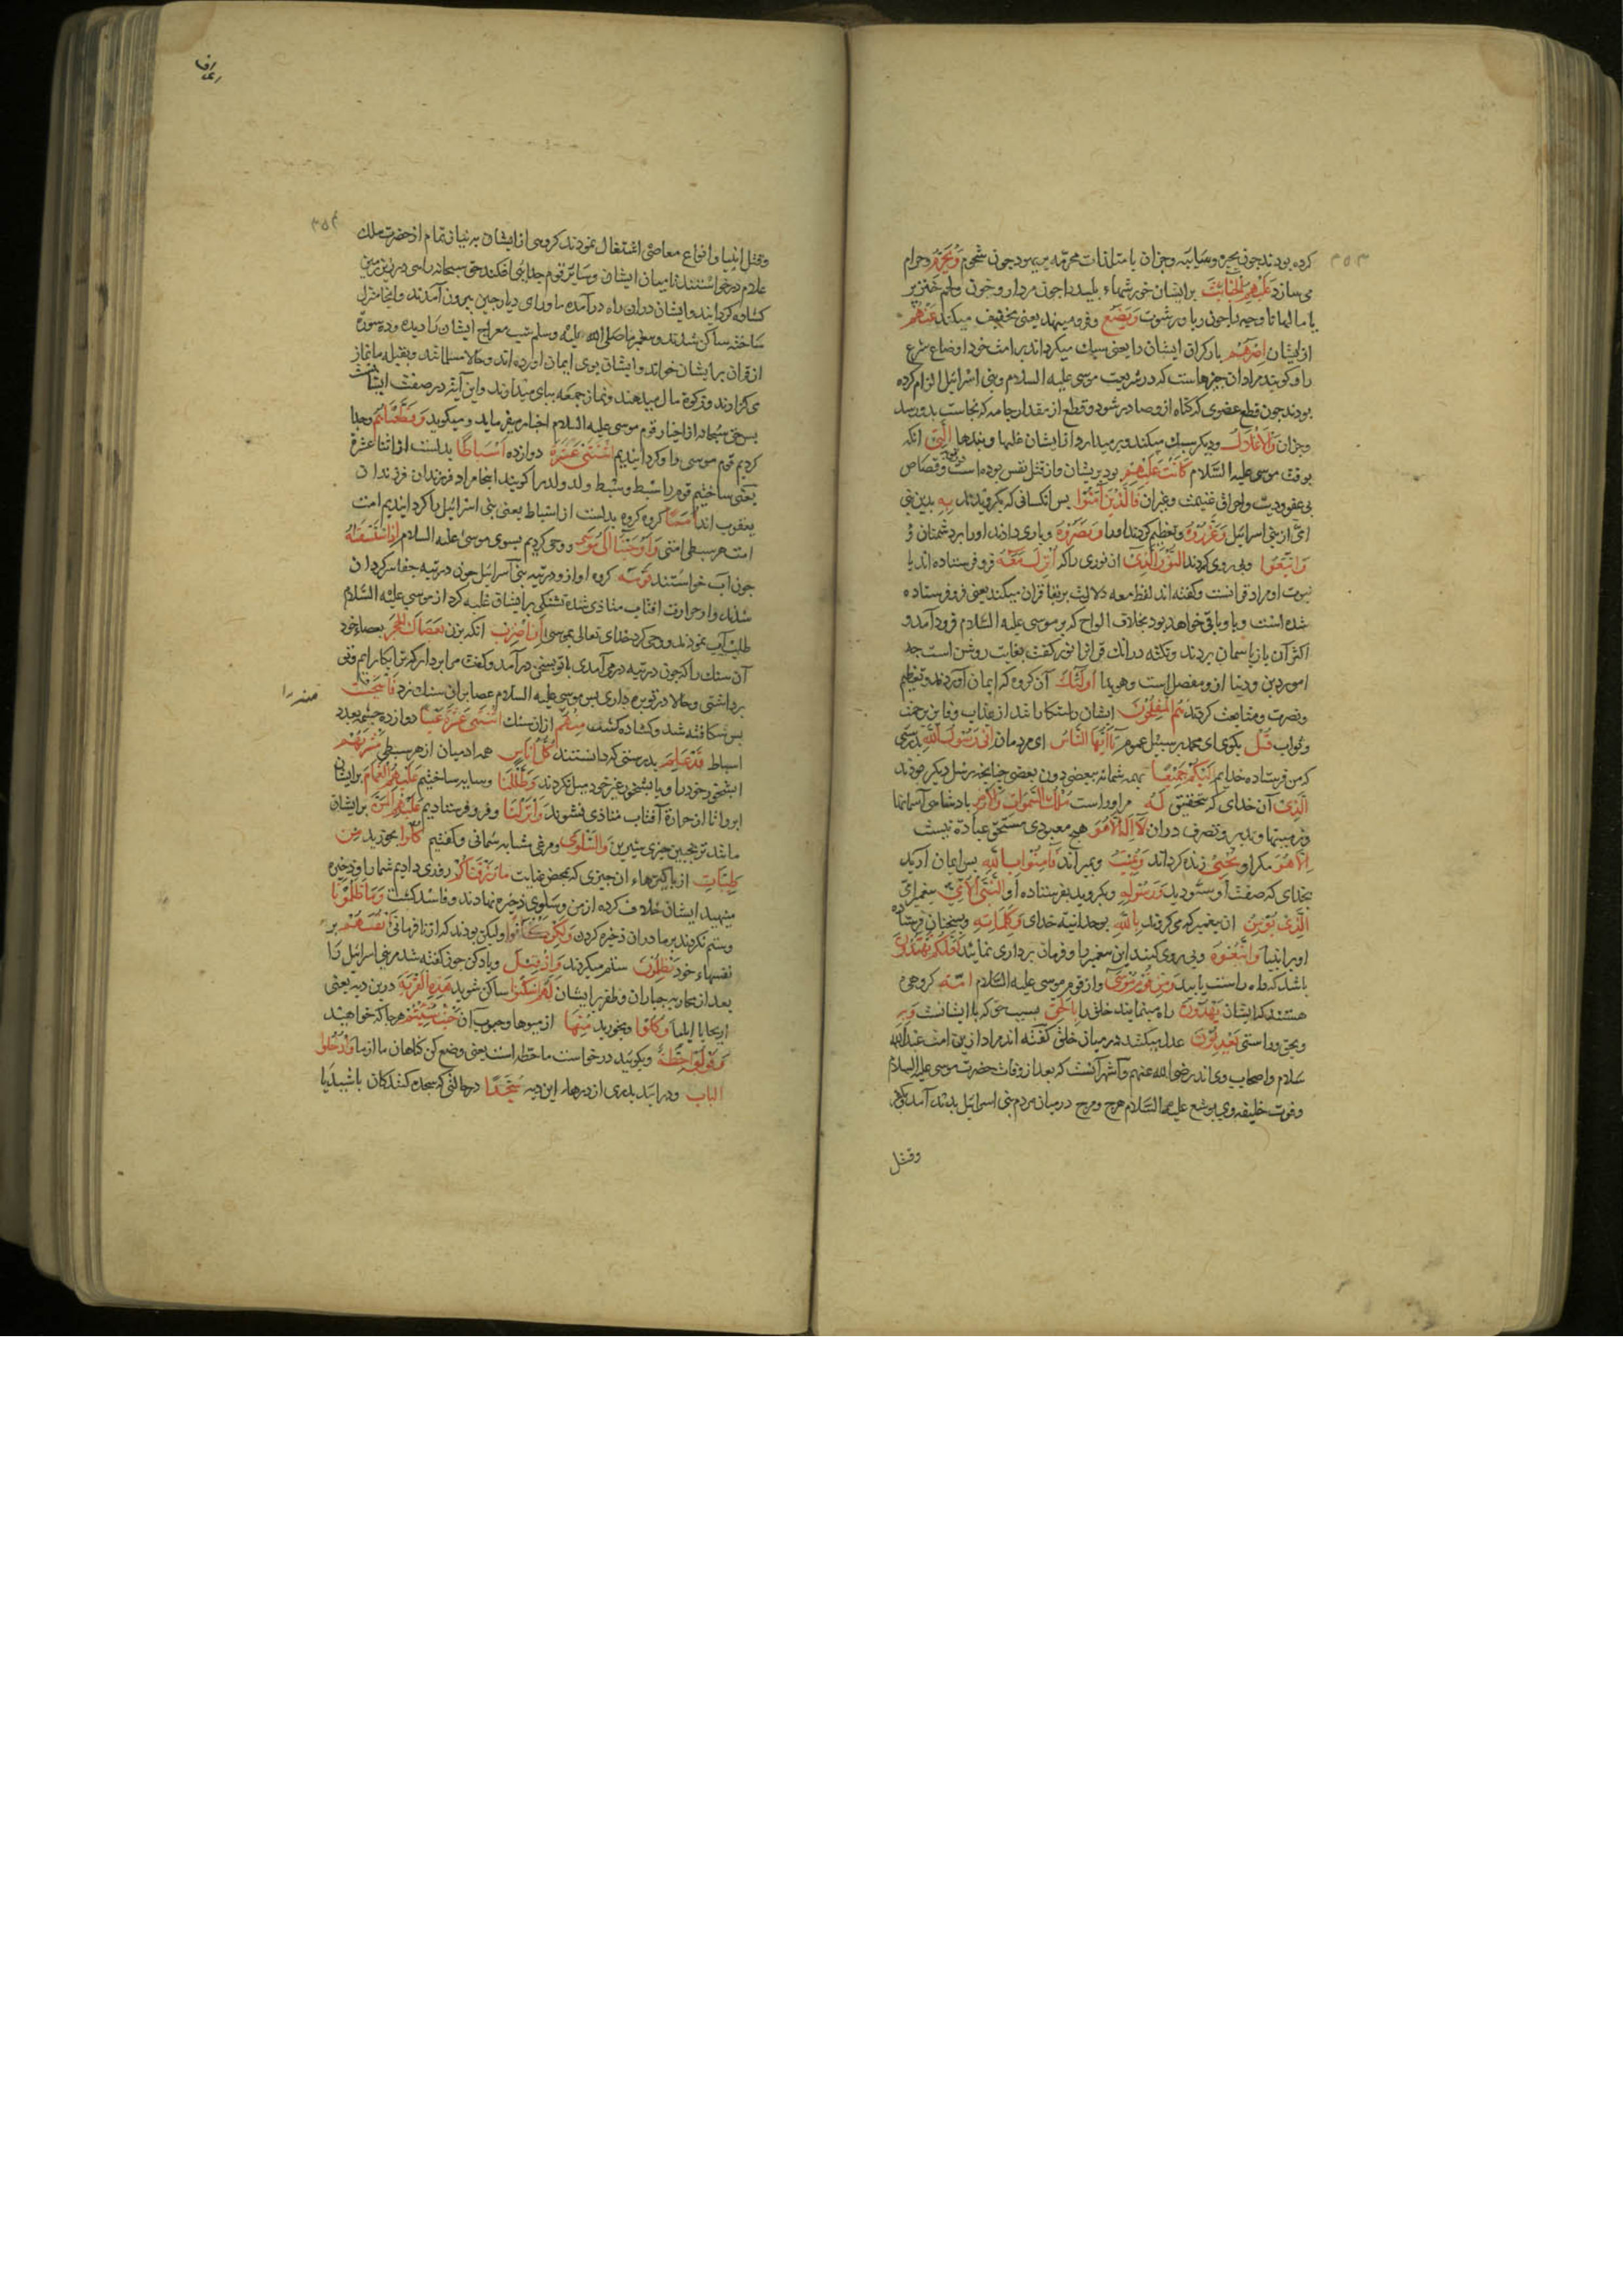 ۳۵۳
کرده بودند چون بحیره و سایبه و جز آن یا متلذذات محرمه بر یهود چون شحوم وَیُحَرِّمُ و حرام
می سازد عَلَیْهِمُ الْخَبَائِثَ بر ایشان خورشهاء پلید را چون مردار و خون و لحم خنزیر
یا مالها ناوجه را چون ربا و رشوت وَیَضَعُ و فرو مینهد یعنی تخفیف میکند عَنْهُمْ
از ایشان اِصْرَهُمْ بار کران ایشان را یعنی سبک میکرداند بر امت خود اوضاع شرع
را و کویند مراد آن چیزهاست که در شریعت موسی علیه السلام و بنی اسرائیل الزام کرده
بودند چون قطع عضوی که کناه از و صادر شود و قطع از مقدار جامه که نجاست بدو رسد
و جز آن وَالْاَغْلَالَ و دیکر سبک میکند و بر میدارد از ایشان غلها و بندها الَّتِی انکه
بوقت موسی علیه السلام کَانَتْ عَلَیْهِمْ بود بریشان و از قتل نفس بوده است و قصاص
بی عفو و دیت و احراق غنیمت و غیر آن فَالَّذِینَ آمَنُوا پس آنکسانی که بکرویدند بِهِ بدین نبی
امی از بنی اسرائیل وَعَزَّرُوهُ و تعظیم کردند او را وَنَصَرُوهُ و یاری دادند او را بر دشمنان و
وَاتَّبَعُوا و پی روی کردند النُّورَ الَّذِی آن نوری را که اُنْزِلَ مَعَهُ فرو فرستاده اند با
نبوت او مراد قرآنست و کفته اند لفظ معه دلالت بر بقا قران میکند یعنی فرو فرستاده
شده است و با او باقی خواهد بود بخلاف الواح که بر موسی علیه السلام فرود آمد و
اکثر آن باز باسمان بردند و نکته در آنک قرآنرا نور کفت بغایت روشن است چه
امور دین و دنیا از و مفصل است و هویدا اُولٰئِکَ آن کروه که ایمان آوردند و تعظیم
و نصرت و متابعت کردند هُمُ الْمُفْلِحُونَ ایشان رستکارانند از عذاب و فایز برحمت
و ثواب قُلْ بکوی ای محمد بر سبیل عموم یَا اَیُّهَا النَّاسُ ای مردمان اِنِّی رَسُولُ اللهِ بدرستی
که من فرستاده خدایم اِلَیْکُمْ جَمِیعًا بهمه شما نه ببعضی دون بعضی چنانچه رسل دیکر بودند
الَّذِی آن خدای که بتحقیق لَهُ مر او راست مُلْکُ السَّمٰوَاتِ وَالْاَرْضِ بادشاهی آسمانها
و زمینها و تدبیر و تصرف در آن لَا اِلٰهَ اِلَّا هُوَ هیچ معبودی مستحق عبادة نیست
اِلَّا هُوَ مکر او یُحْیِی زنده کرداند وَیُمِیتُ و بمیراند فَآمِنُوا بِاللهِ پس ایمان آرید
بخدای که صفت او شنودید وَرَسُولِهِ و بکروید بفرستاده او النَّبِیِّ الْاُمِّیِّ پیغمبر امی
الَّذِی یُؤْمِنُ آن پیغمبر که می کرود بِاللهِ بوحدانیة خدای وَکَلِمَاتِهِ و بسخنان فرستاده
او بر انبیا وَاتَّبِعُوهُ و پی روی کنید این پیغمبر را و فرمان برداری نمائید لَعَلَّکُمْ تَهْتَدُونَ
باشد که راه راست یابید وَمِنْ قَوْمِ مُوسٰی و از قوم موسی علیه السلام اُمَّةٌ کروهی
هستند که ایشان یَهْدُونَ راه مینمایند خلق را بِالْحَقِّ بسبب حق که با ایشانست وَبِهِ
و بحق و راستی یَعْدِلُونَ عدل میکنند در میان خلق کفته اند مراد ازین امت عبدالله
سلام و اصحاب وی اند رضی الله عنهم و اشهر آنست که بعد از وفات حضرت موسی علیه السلام
و فوت خلیفه وی یوشع علیهما السلام هرج و مرج در میان مردم بنی اسرائیل پدید آمد و
وقتل
۳۵۴
وقتل انبیا و انواع معاصی اشتغال نمودند کروهی از ایشان به نیاز تمام از حضرت ملک
علام درخواستند تا میان ایشان و سایر قوم جدایی افکند حق سبحانه راهی در زیر زمین
کشاده کرداند و ایشان در ان راه درآمده ماورای دیار چین بیرون آمدند و آنجا منزل
ساخته ساکن شدند و پیغمبر ما صلی الله علیه و سلم شب معراج ایشان را دیده و ده سوره
از قران بر ایشان خواند و ایشان بوی ایمان اورده اند و حالا مسلمانند و بقبله ما نماز
می کزارند و زکوة مال میدهند و نماز جمعه بپای میدارند و این آیه در صفت ایشانست
پس حق سبحانه از اخبار قوم موسی علیه السلام اخبار میفرماید و میکوید وَقَطَّعْنَاهُمُ و جدا
کردیم قوم موسی را و کردانیدیم اثْنَتَیْ عَشْرَةَ دوازده اَسْبَاطًا بدلست از اثنا عشرة
یعنی ساختیم قوم را سبط و سبط ولد ولد را کویند اینجا مراد فرزندان فرزندان
یعقوب اند اُمَمًا کروه کروه بدلست از اسباط یعنی بنی اسرائیل را کردانیدیم امت
امت هر سبطی امتی وَاَوْحَیْنَا اِلٰی مُوسٰی و وحی کردیم بسوی موسی علیه السلام اِذِ اسْتَسْقٰیهُ
چون آب خواستند قَوْمُهُ کروه او از و در تیه بنی اسرائیل چون در تیه
شدند و از حرارت افتاب متاذی شده تشنکی بر ایشان غلبه کرد از موسی علیه السلام
طلب آب نمودند و وحی کرد خدای تعالی بموسی اَنِ اضْرِبْ انکه بزن بِعَصَاکَ الْحَجَرَ بعصای خود
آن سنک را که چون در تیه درمی آمدی با تو بسخن درآمد و کفت مرا بردار که ترا بکار آیم و تو
برداشتی و حالا در توبره داری پس موسی علیه السلام عصا بر آن سنک زد فَانْبَجَسَتْ
پس شکافته شد و کشاده کشت مِنْهُ از ان سنک اثْنَتَا عَشْرَةَ عَیْنًا دوازده چشمه بعدد
اسباط قَدْ عَلِمَ بدرستی که دانستند کُلُّ اُنَاسٍ همه ادمیان از هر سبطی مَشْرَبَهُمْ
ابشخور خود را و با بشخور غیر خود میل نکردند وَظَلَّلْنَا و سایه ساختیم عَلَیْهِمُ الْغَمَامَ بر ایشان
ابر را تا از حرارة آفتاب متاذی نشوند وَاَنْزَلْنَا و فرو فرستادیم عَلَیْهِمُ الْمَنَّ بر ایشان
مانند ترنجبین چیزی شیرین وَالسَّلْوٰی و مرغی مشابه سمانی و کفتیم کُلُوا بخورید مِنْ
طَیِّبَاتِ از پاکیزهاء آن چیزی که بمحض عنایت مَا رَزَقْنَاکُمْ روزی دادیم شما را و ذخیره
منهید ایشان خلاف کرده از من و سلوی ذخیره نهادند و فاسد کشت وَمَا ظَلَمُونَا
و ستم نکردند بر ما در ان ذخیره کردن وَلٰکِنْ کَانُوا ولیکن بودند که از نافرمانی اَنْفُسَهُمْ بر
نفسهاء خود یَظْلِمُونَ ستم میکردند وَاِذْ قِیلَ و یاد کن چون کفته شد مر بنی اسرائیل را
بعد از محاربه جباران و ظفر بر ایشان لَهُمُ اسْکُنُوا ساکن شوید هٰذِهِ الْقَرْیَةَ درین دیه یعنی
اریحا یا ایلیا وَکُلُوا و بخورید مِنْهَا از میوها و حبوب آن حَیْثُ شِئْتُمْ هرجا که خواهید
وَقُولُوا حِطَّةٌ و بکوئید درخواست ما حطه است یعنی وضع کن کناهان ما از ما وَادْخُلُوا
الْبَابَ و درائید بدری از درهاء این دیه سُجَّدًا در حالتی که سجده کنندکان باشید یا